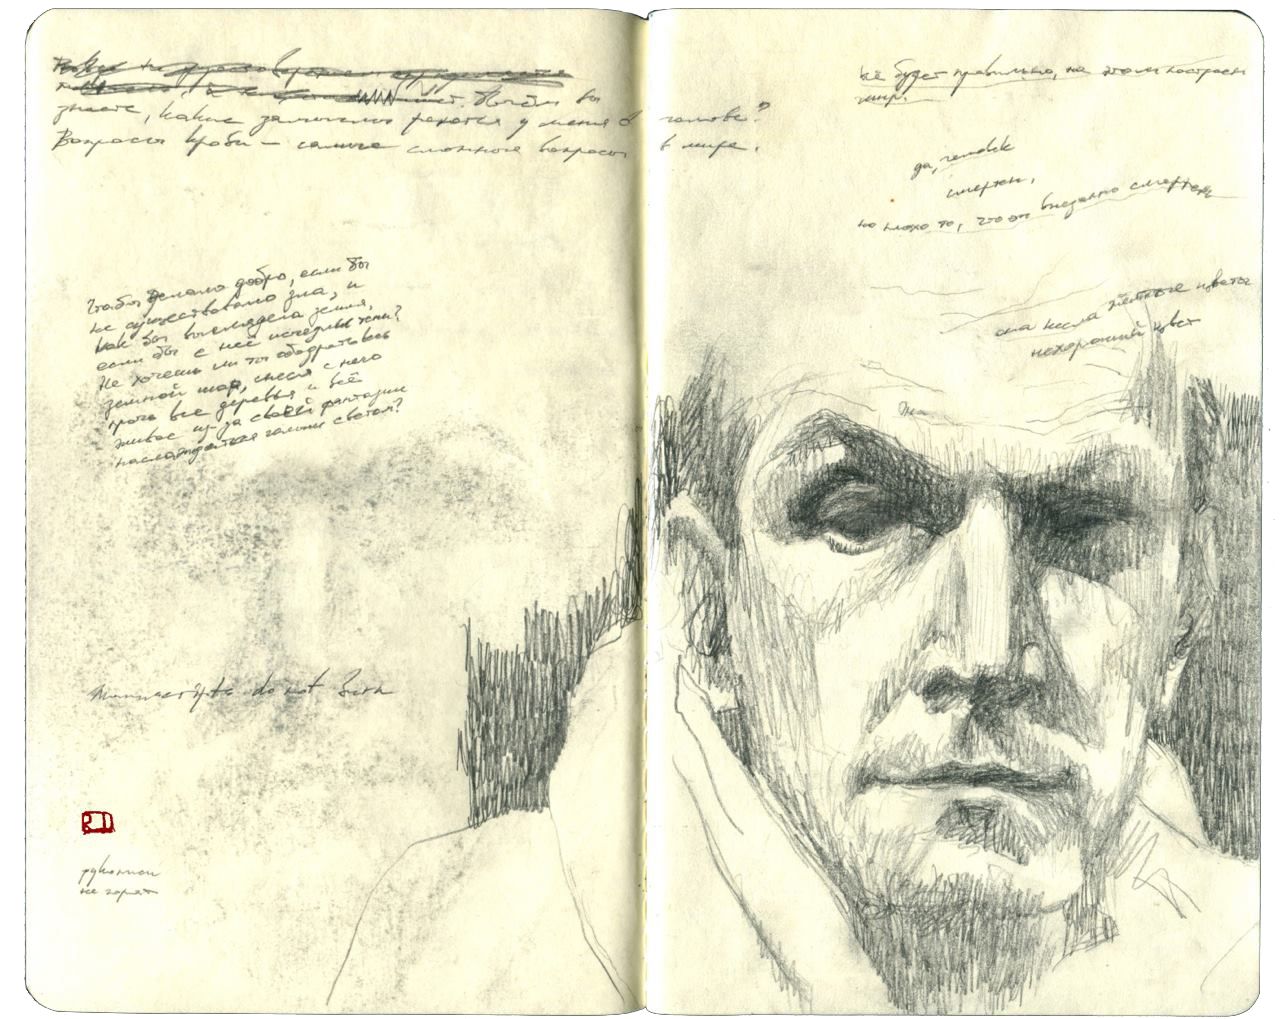 знаете, какие замыслы роются у меня в голове?
Вопросы крови – самые сложные вопросы в мире.
Чтобы делало добро, если бы
не существовало зла, и
как бы выглядела земля,
если бы с неё исчезли тени?
Не хочешь ли ты ободрать весь
земной шар, снеся с него
прочь все деревья и всё
живое из-за своей фантазии
наслаждаться голым светом?
Manuscripts do not burn
рукописи
не горят
всё будет правильно, на этом построен
мир.
да, человек
смертен,
но плохо то, что он внезапно смертен
она несла жёлтые цветы
нехороший цвет